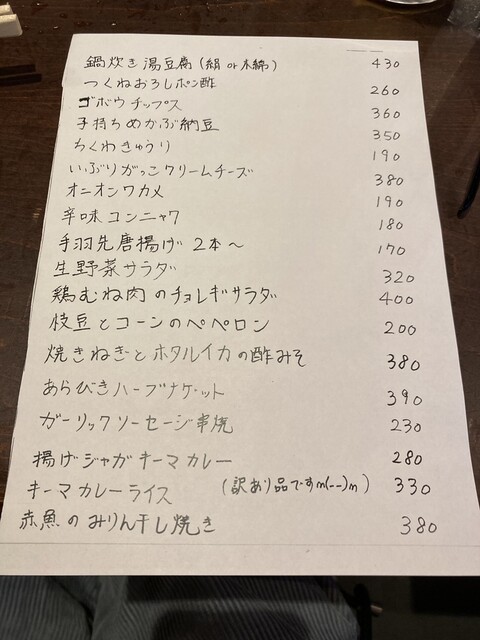 鍋炊き湯豆腐(絹or木綿) 430
つくねおろしポン酢 260
ゴボウチップス 360
子持ちめかぶ納豆 350
ちくわきゅうり 190
いぶりがっこクリームチーズ 380
オニオンワカメ 190
辛味コンニャク 180
手羽先唐揚げ 2本〜 170
生野菜サラダ 320
鶏むね肉のチョレギサラダ 400
枝豆とコーンのペペロン 200
焼きねぎとホタルイカの酢みそ 380
あらびきハーブナゲット 390
ガーリックソーセージ串焼 230
揚げジャガキーマカレー 280
キーマカレーライス (訳あり品ですm(--)m) 330
赤魚のみりん干し焼き 380